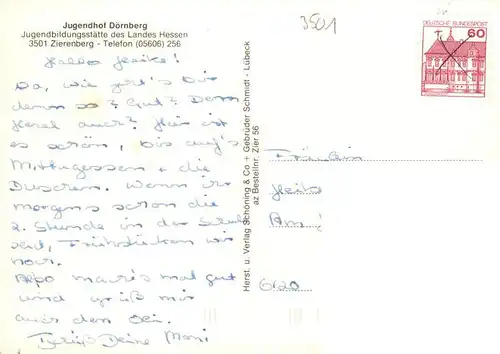 Jugendhof Dörnberg
Jugendbildungsstätte des Landes Hessen
3501 Zierenberg - Telefon (05606) 256
3501
DEUTSCHE BUNDESPOST
60
Hallo Heike!
Na, wie geht's Dir
denn so? Gut? Dem
auch? Hier ist
es schön, bis auf's
Mittagessen + die
Duschen. Wenn ihr
morgens schon die
2. Stunde in der Schule
seid, Frühstücken wir
noch.
Also mach's mal gut
und grüß mir
auch den
Tschüß Deine Moni
Herst. u. Verlag Schöning & Co + Gebrüder Schmidt - Lübeck
az Bestellnr. Zier 56
Fräulein
Heike
Am
6120